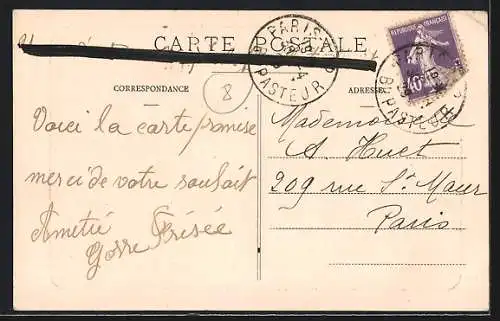 CARTE POSTALE
CORRESPONDANCE
ADRESSE
8
PARIS
Bd PASTEUR
REPUBLIQUE FRANÇAISE
40c
PARIS
Bd PASTEUR
Voici la carte promise
merci de votre souhait
Amitié Frisée
Mademoiselle
A. Huet
209 rue St Maur
Paris